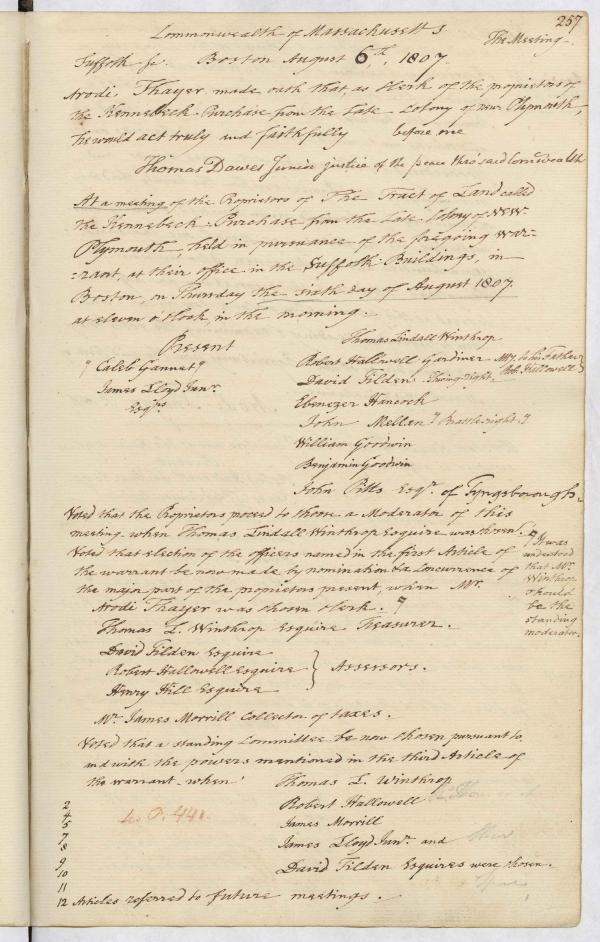 257
Commonwealth of Massachusetts
The Meeting.
Suffolk sc. Boston August 6th. 1807.
Arodi Thayer made oath that, as Clerk of the proprietors of
the Kennebeck Purchase from the Late Colony of new Plymouth,
he would act truly and faithfully before me
Thomas Dawes Junior justice of the peace thro' said Comonwealth
At a meeting of the Proprietors of The Tract of Land called
the Kennebeck-Purchase from the Late Colony of New-
Plymouth, held in pursuance of the foregoing War-
-rant, at their office in the Suffolk Buildings, in
Boston, on Thursday the sixth day of August 1807.
at eleven o'Clock, in the morning.
Present
" Caleb Gannet "
James Lloyd Junr.
Esqrs
Thomas Lindall Winthrop
Robert Hallowell Gardiner Atty. to his Father Rob. Hallowell
David Tilden
Ebenezer Hancock
John Mellen " Brattle right. "
William Goodwin
Benjamin Goodwin
John Pitts Esqr. of Tyngsborough.
Voted that the Proprietors proceed to choose a Moderator of this
meeting when Thomas Lindall Winthrop Esquire was chosen. "
Voted that election of the officers named in the first Article of
the warrant be now made by nomination & a Concurrence of
the major part of the proprietors present, when Mr.
Arodi Thayer was chosen Clerk. "
" It was
understood
that Mr.
Winthrop
should
be the
standing
moderator.
Thomas L. Winthrop Esquire Treasurer.
David Tilden Esquire
Robert Hallowell Esquire } Assessors.
Henry Hill Esquire
Mr. James Morrill Collector of taxes.
Voted that a standing Committee be now chosen pursuant to,
and with the powers mentioned in the third Article of
the warrant when Thomas L. Winthrop
Robert Hallowell
James Morrill
James Lloyd Junr. and
David Tilden Esquires were chosen.
P. 441.
2
4
5
7
8
9
10
11
12 Articles referred to future meetings.